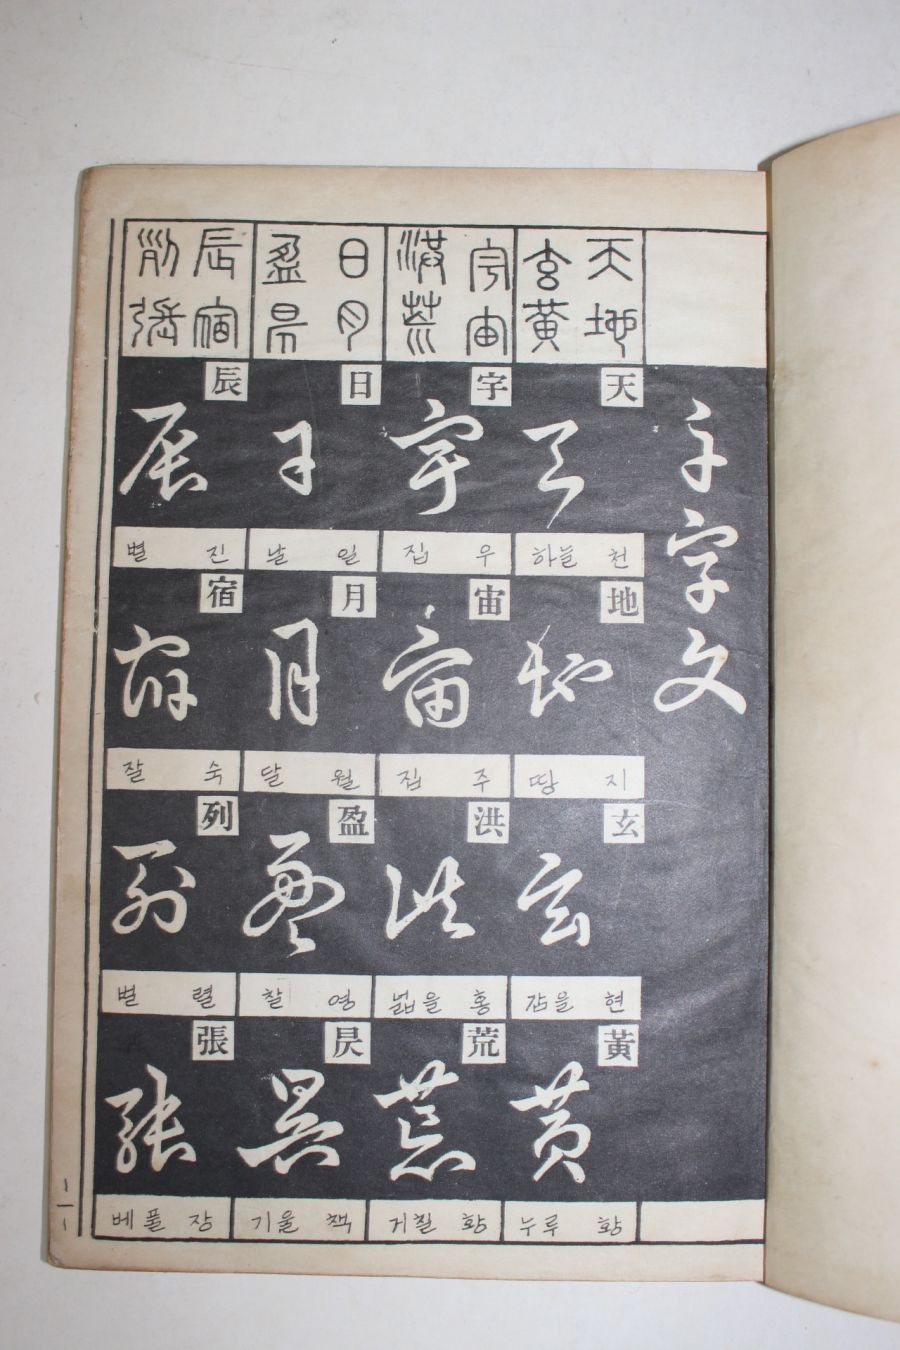 千字文
天地
玄黃
天
天
하늘 천
地
地
땅 지
玄
玄
감을 현
黃
黃
누루 황
宇宙
洪荒
宇
宇
집 우
宙
宙
집 주
洪
洪
넓을 홍
荒
荒
거칠 황
日月
盈昃
日
日
날 일
月
月
달 월
盈
盈
찰 영
昃
昃
기울 책
辰宿
列張
辰
辰
별 진
宿
宿
잘 숙
列
列
벌 렬
張
張
베풀 장